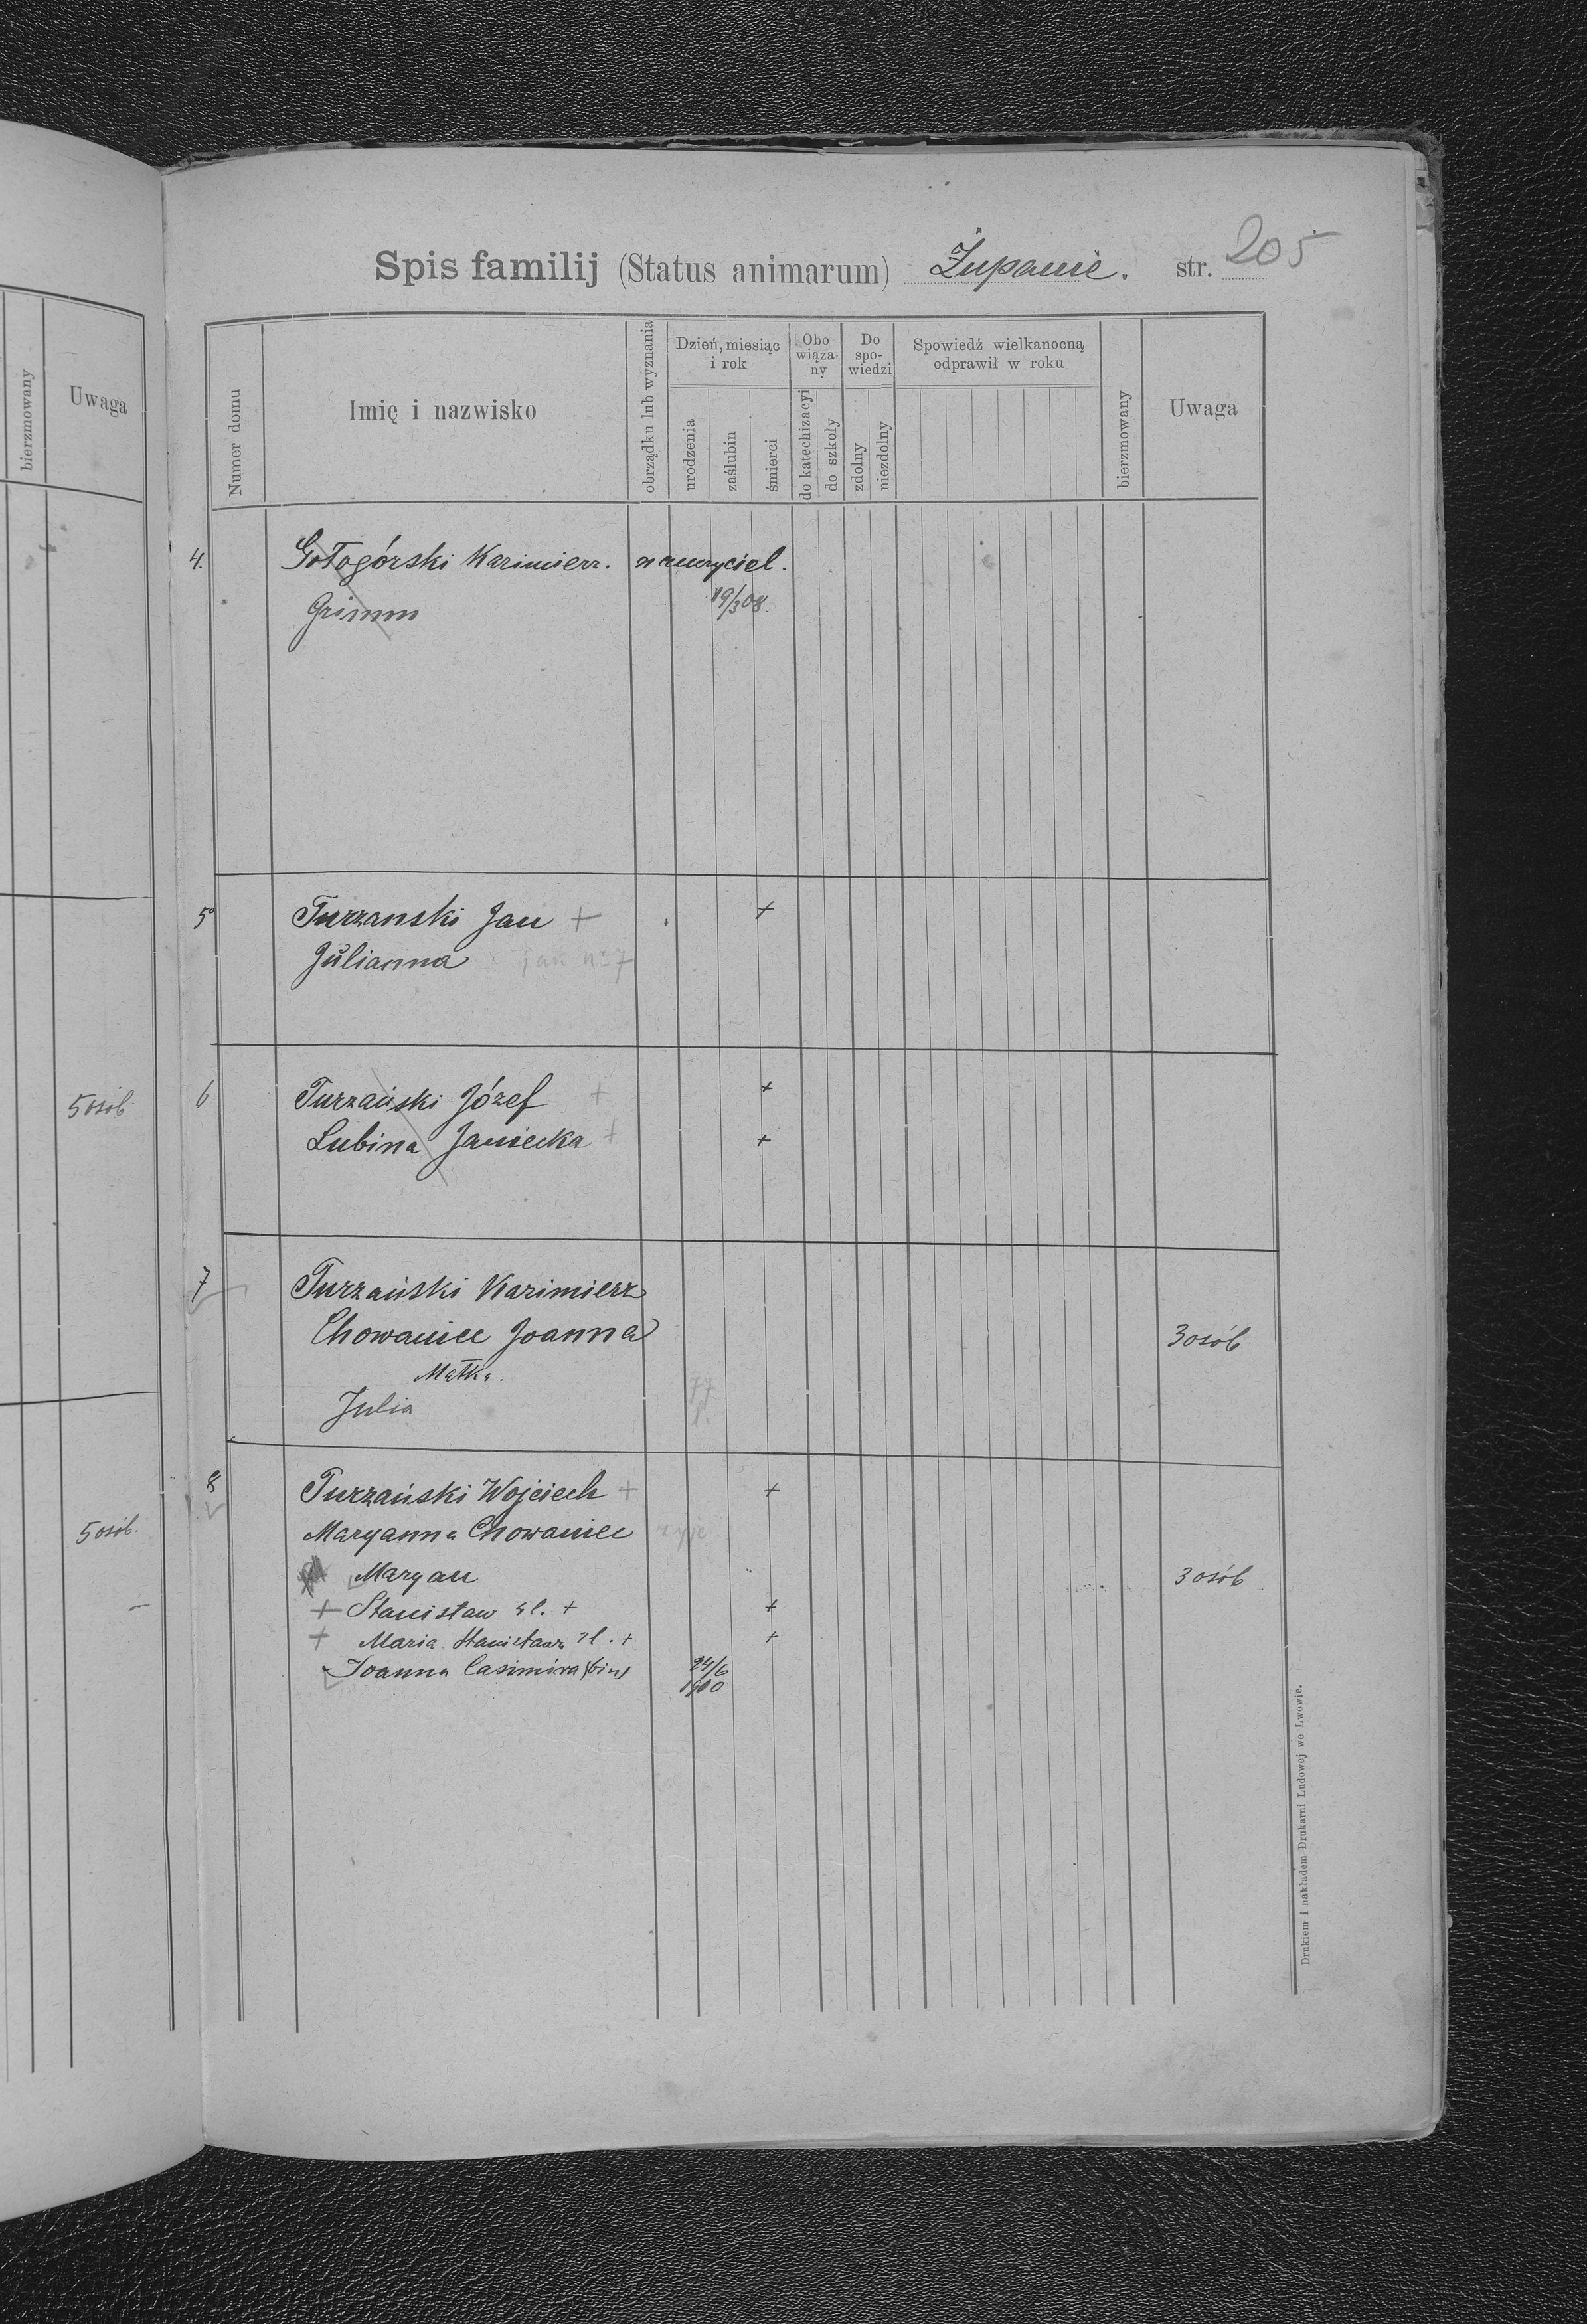 bierzmowany
Uwaga
5 osób
5 osób.
Spis familij (Status animarum) Żupanie. str. 205
Numer domu
Imię i nazwisko
obrządku lub wyznania
Dzień, miesiąc i rok
urodzenia
zaślubin
śmierci
Obo wiąza- ny
do katechizacyi
do szkoły
Do spo- wiedzi
zdolny
niezdolny
Spowiedź wielkanocną odprawił w roku
bierzmowany
Uwaga
4. Gołogórski Kazimierz. nauczyciel.
Grimm 19/3 08.
5 Turzanski Jan + +
Julianna jak nr 7
6 Turzański Józef + +
Lubina Janiecka + +
7 Turzański Kazimierz
Chowaniec Joanna 3 osób
Matka.
Julia 77 l.
8 Turzański Wojciech + +
Maryanna Chowaniec żyje
Maryan 3 osób
+ Stanisław 4 l. + +
+ Maria Stanisława 7 l. + +
Joanna Casimira (bin) 24/6
1900
Drukiem i nakładem Drukarni Ludowej we Lwowie.